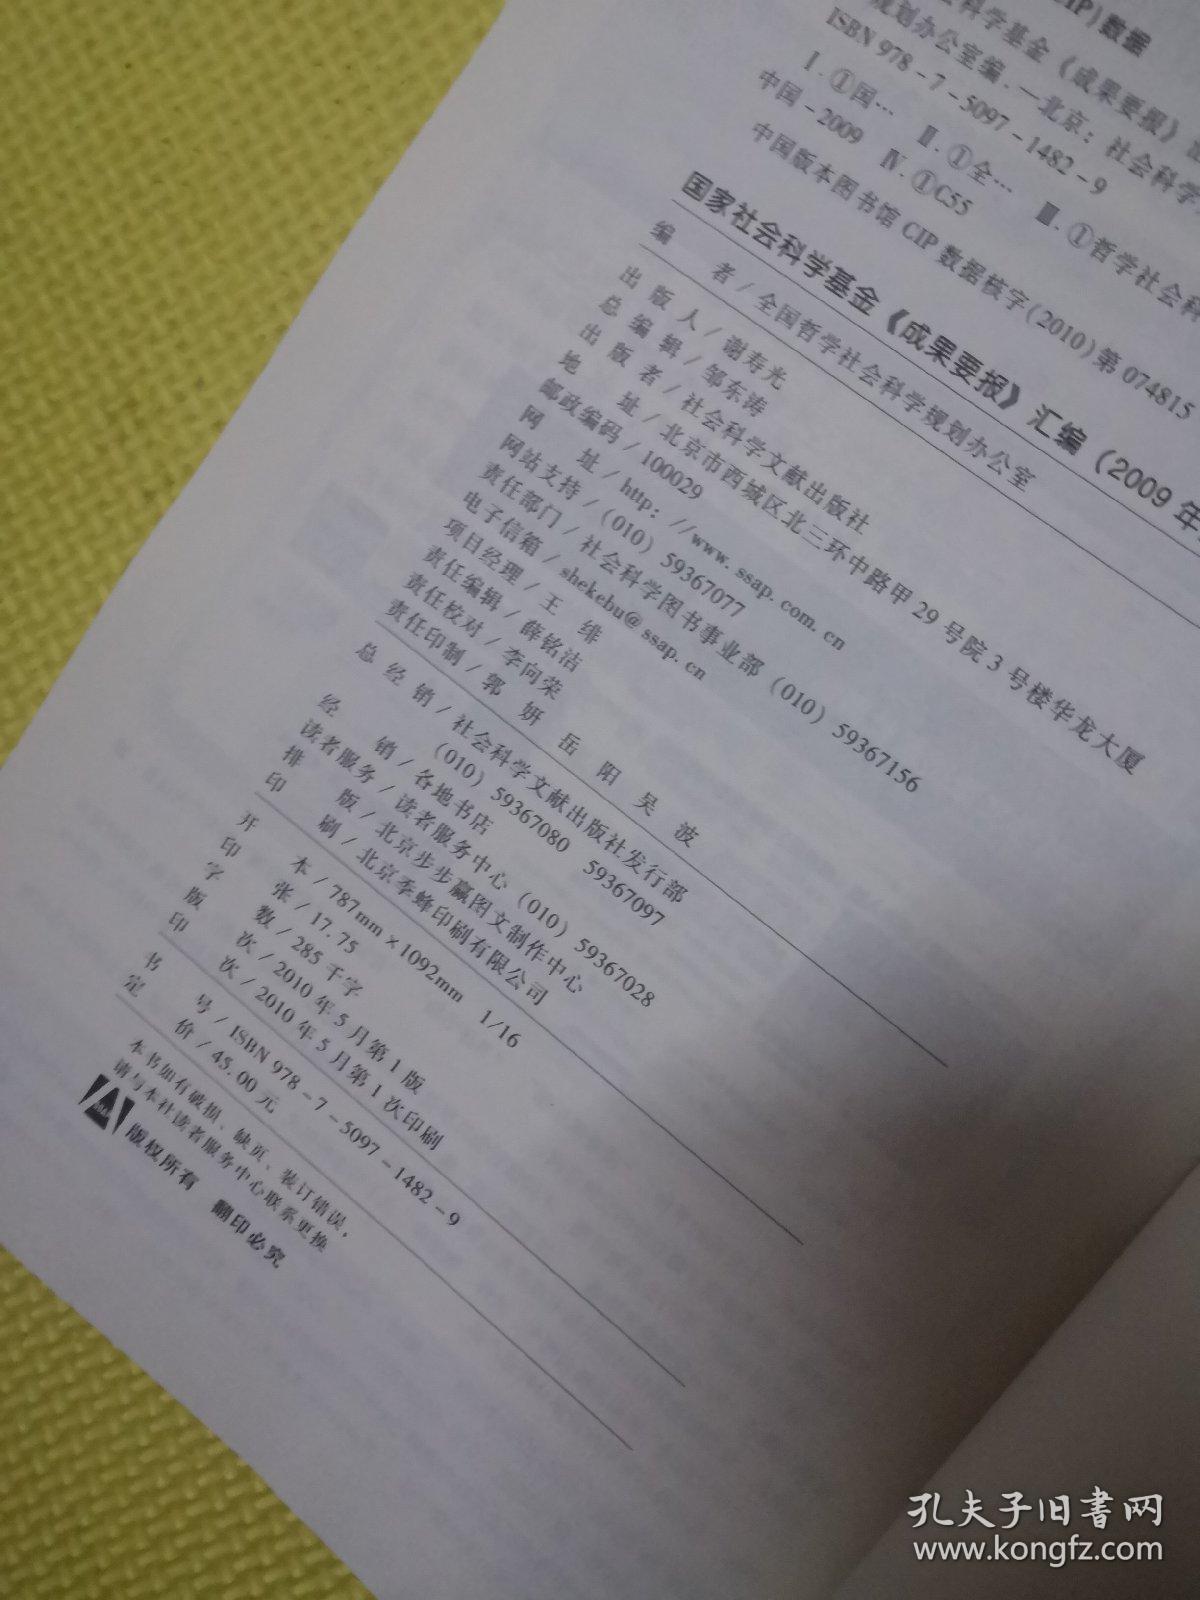 CIP)数据
科学基金《成果要报》
规划办公室编.—北京:社会科学
ISBN 978-7-5097-1482-9
Ⅰ.①国… Ⅱ.①全… Ⅲ.①哲学社会科
中国-2009 Ⅳ.①C55
中国版本图书馆CIP数据核字(2010)第074815
国家社会科学基金《成果要报》汇编(2009年
编 者/全国哲学社会科学规划办公室
出 版 人/谢寿光
总 编 辑/邹东涛
出 版 者/社会科学文献出版社
地 址/北京市西城区北三环中路甲29号院3号楼华龙大厦
邮政编码/100029
网 址/http://www.ssap.com.cn
网站支持/(010)59367077
责任部门/社会科学图书事业部(010)59367156
电子信箱/shekebu@ssap.cn
项目经理/王 绯
责任编辑/薛铭洁
责任校对/李向荣
责任印制/郭 妍 岳 阳 吴 波
总 经 销/社会科学文献出版社发行部
(010)59367080 59367097
经 销/各地书店
读者服务/读者服务中心(010)59367028
排 版/北京步步赢图文制作中心
印 刷/北京季蜂印刷有限公司
开 本/787mm×1092mm 1/16
印 张/17.75
字 数/285千字
版 次/2010年5月第1版
印 次/2010年5月第1次印刷
书 号/ISBN 978-7-5097-1482-9
定 价/45.00元
本书如有破损、缺页、装订错误,
请与本社读者服务中心联系更换
版权所有 翻印必究
孔夫子旧书网
www.kongfz.com